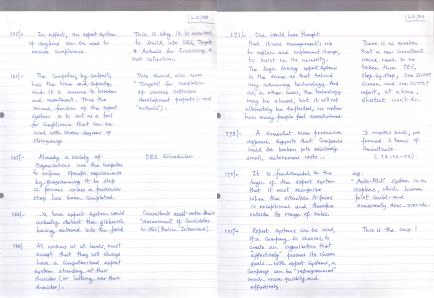 In effect, an expert system
of anyband can be used to
ensure compliance.
This is why it is essential
to build into OES, Targets
& Actuals for Invoicing &
Net Collection.
The computer, by contrast,
has the time and capacity
and it is immune to boredom
and resentment. Thus the
second function of the expert
system is to act as a tool
for compliance that can be
used with various degrees of
stringency.
This should also cover
"Target" for completion
of various software
development projects (and
Actuals).
Already a variety of
Organizations use the computer
to enforce specific requirements
by programming it to stop
a process unless a particular
step has been completed.
OES Scheduler
.. a true expert system would
actually detect the gibberish
being entered into the field
Consultants must enter their
"Assessment" of Candidates
in OES (Online Interview).
All workers at all levels, must
accept that they will always
have a computerized expert
system standing at their
shoulder (or looking over their
shoulder).
One would have thought
that it was management's role
to explain and implement change,
to burst as its necessity.
The logic driving expert systems
is the same as that behind
any advancing technology. And
so, in other cases, the technology
may be slowed, but it will not
ultimately be defeated, no matter
how many people feel overwhelmed.
There is no question
that a new Consultant
would need to be
taken thru OES,
Step-by-Step, One Screen
and one output
report, at a time.
Shortcut won't do.
A somewhat more persuasive
approach suggests that Companies
could be broken into relatively
small, autonomous units...
3 months back, we
formed 2 teams of
Consultants
It is fundamental to the
logic of the expert system
that it must recognise
when the situation it faces
is exceptional and therefore
outside its range of rules.
eg:
"Auto-Pilot" system in an
airplane, which human
pilot could and
occasionally does - override
Expert systems can be used,
if a Company so chooses, to
create an organisation that
effectively pursues its chosen
goals... with expert systems, a
Company can be "reprogrammed"
much more quickly and
effectively.
This is the case!